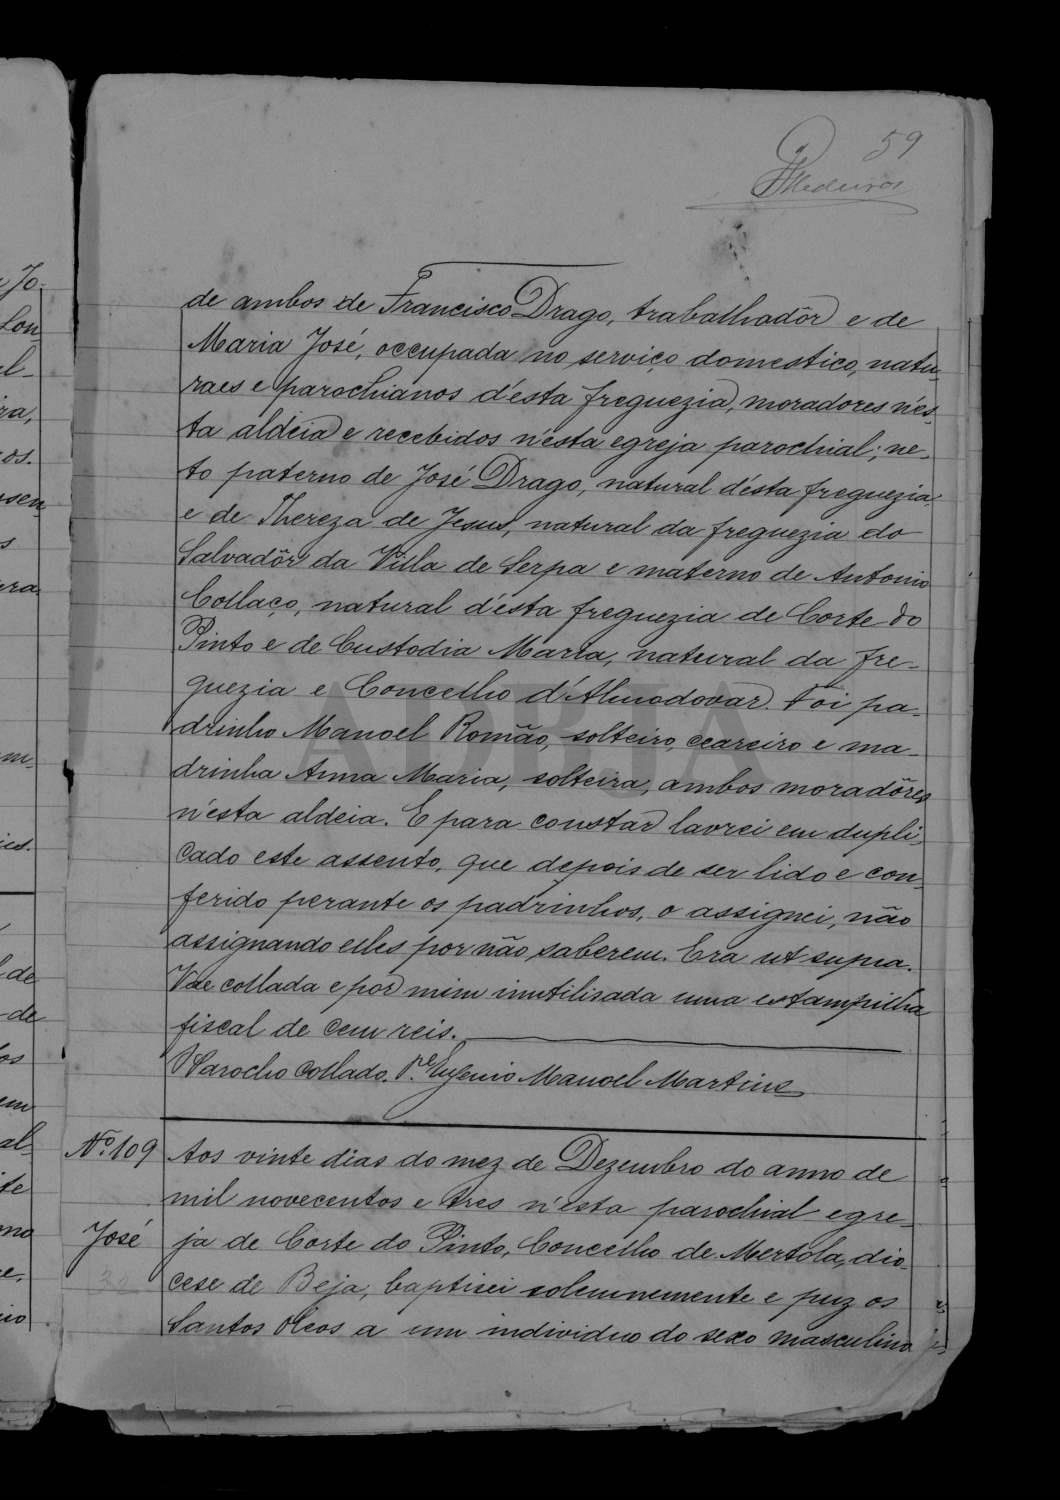 59
PMedeiros
de ambos de Francisco Drago, trabalhadôr e de
Maria José, occupada no serviço domestico, natu-
raes e parochianos d'ésta freguezia, moradores n'es-
ta aldeia e recebidos n'ésta egreja parochial; ne-
to paterno de José Drago, natural d'ésta freguezia,
e de Thereza de Jesus, natural da freguezia do
Salvadôr da Villa de Serpa e materno de Antonio
Collaço, natural d'ésta freguezia de Corte do
Pinto e de Custodia Maria, natural da fre-
guezia e Concelho d'Almodovar. Foi pa-
drinho Manoel Romão, solteiro, ceareiro e ma-
drinha Anna Maria, solteira, ambos moradôres
n'ésta aldeia. E para constar lavrei em dupli-
cado este assento, que depois de ser lido e con-
ferido perante os padrinhos, o assignei, não
assignando elles por não saberem. Era ut supra.
Vae collada e por mim inutilisada uma estampilha
fiscal de cem reis.
O Parocho Collado. P.e Eugenio Manoel Martins
Nº. 109
José
30
Aos vinte dias do mez de Dezembro do anno de
mil novecentos e tres n'ésta parochial egre-
ja de Corte do Pinto, Concelho de Mertola, dio-
cese de Beja, baptisei solemnemente e puz os
Santos Oleos a um individuo do sexo masculino
ADBJA